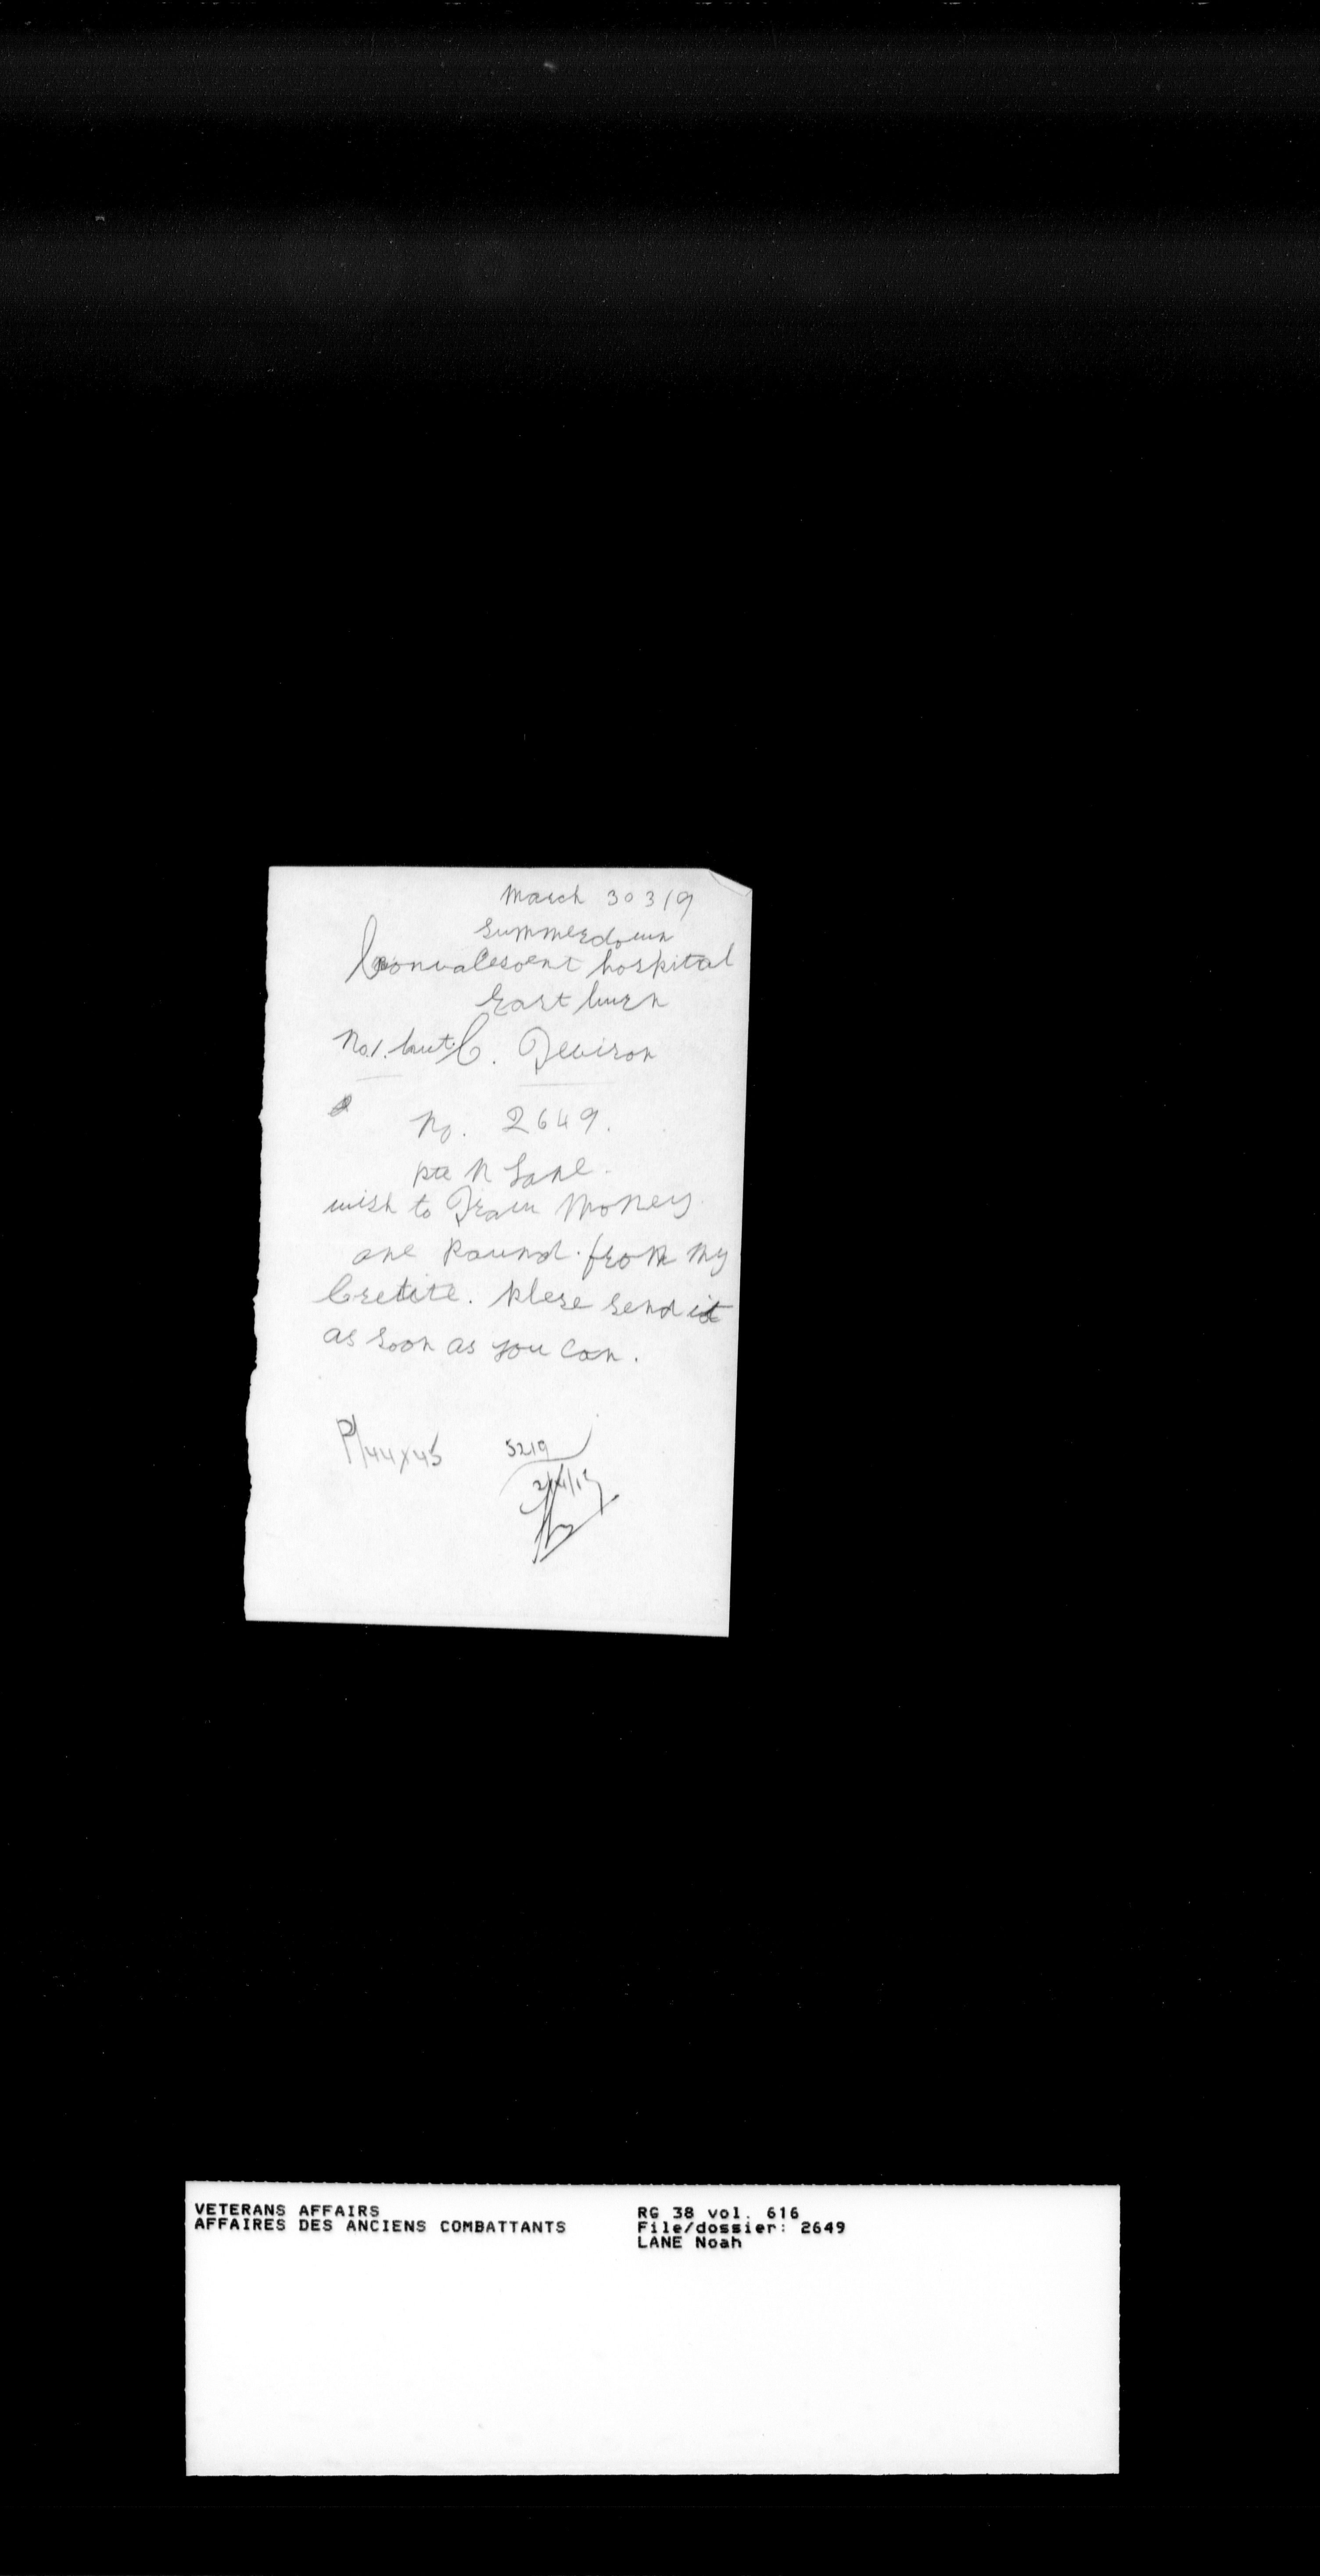 March 30 319
Summerdown
Convalesoent hospital
East burn
No.1. hut C. Devison
No. 2649.
pte N Lane.
wish to Draw Money
one Pound. from my
Cretite. Plese send it
as soon as you can.
P/44x45 5219
VETERANS AFFAIRS
AFFAIRES DES ANCIENS COMBATTANTS
RG 38 vol. 616
File/dossier: 2649
LANE Noah